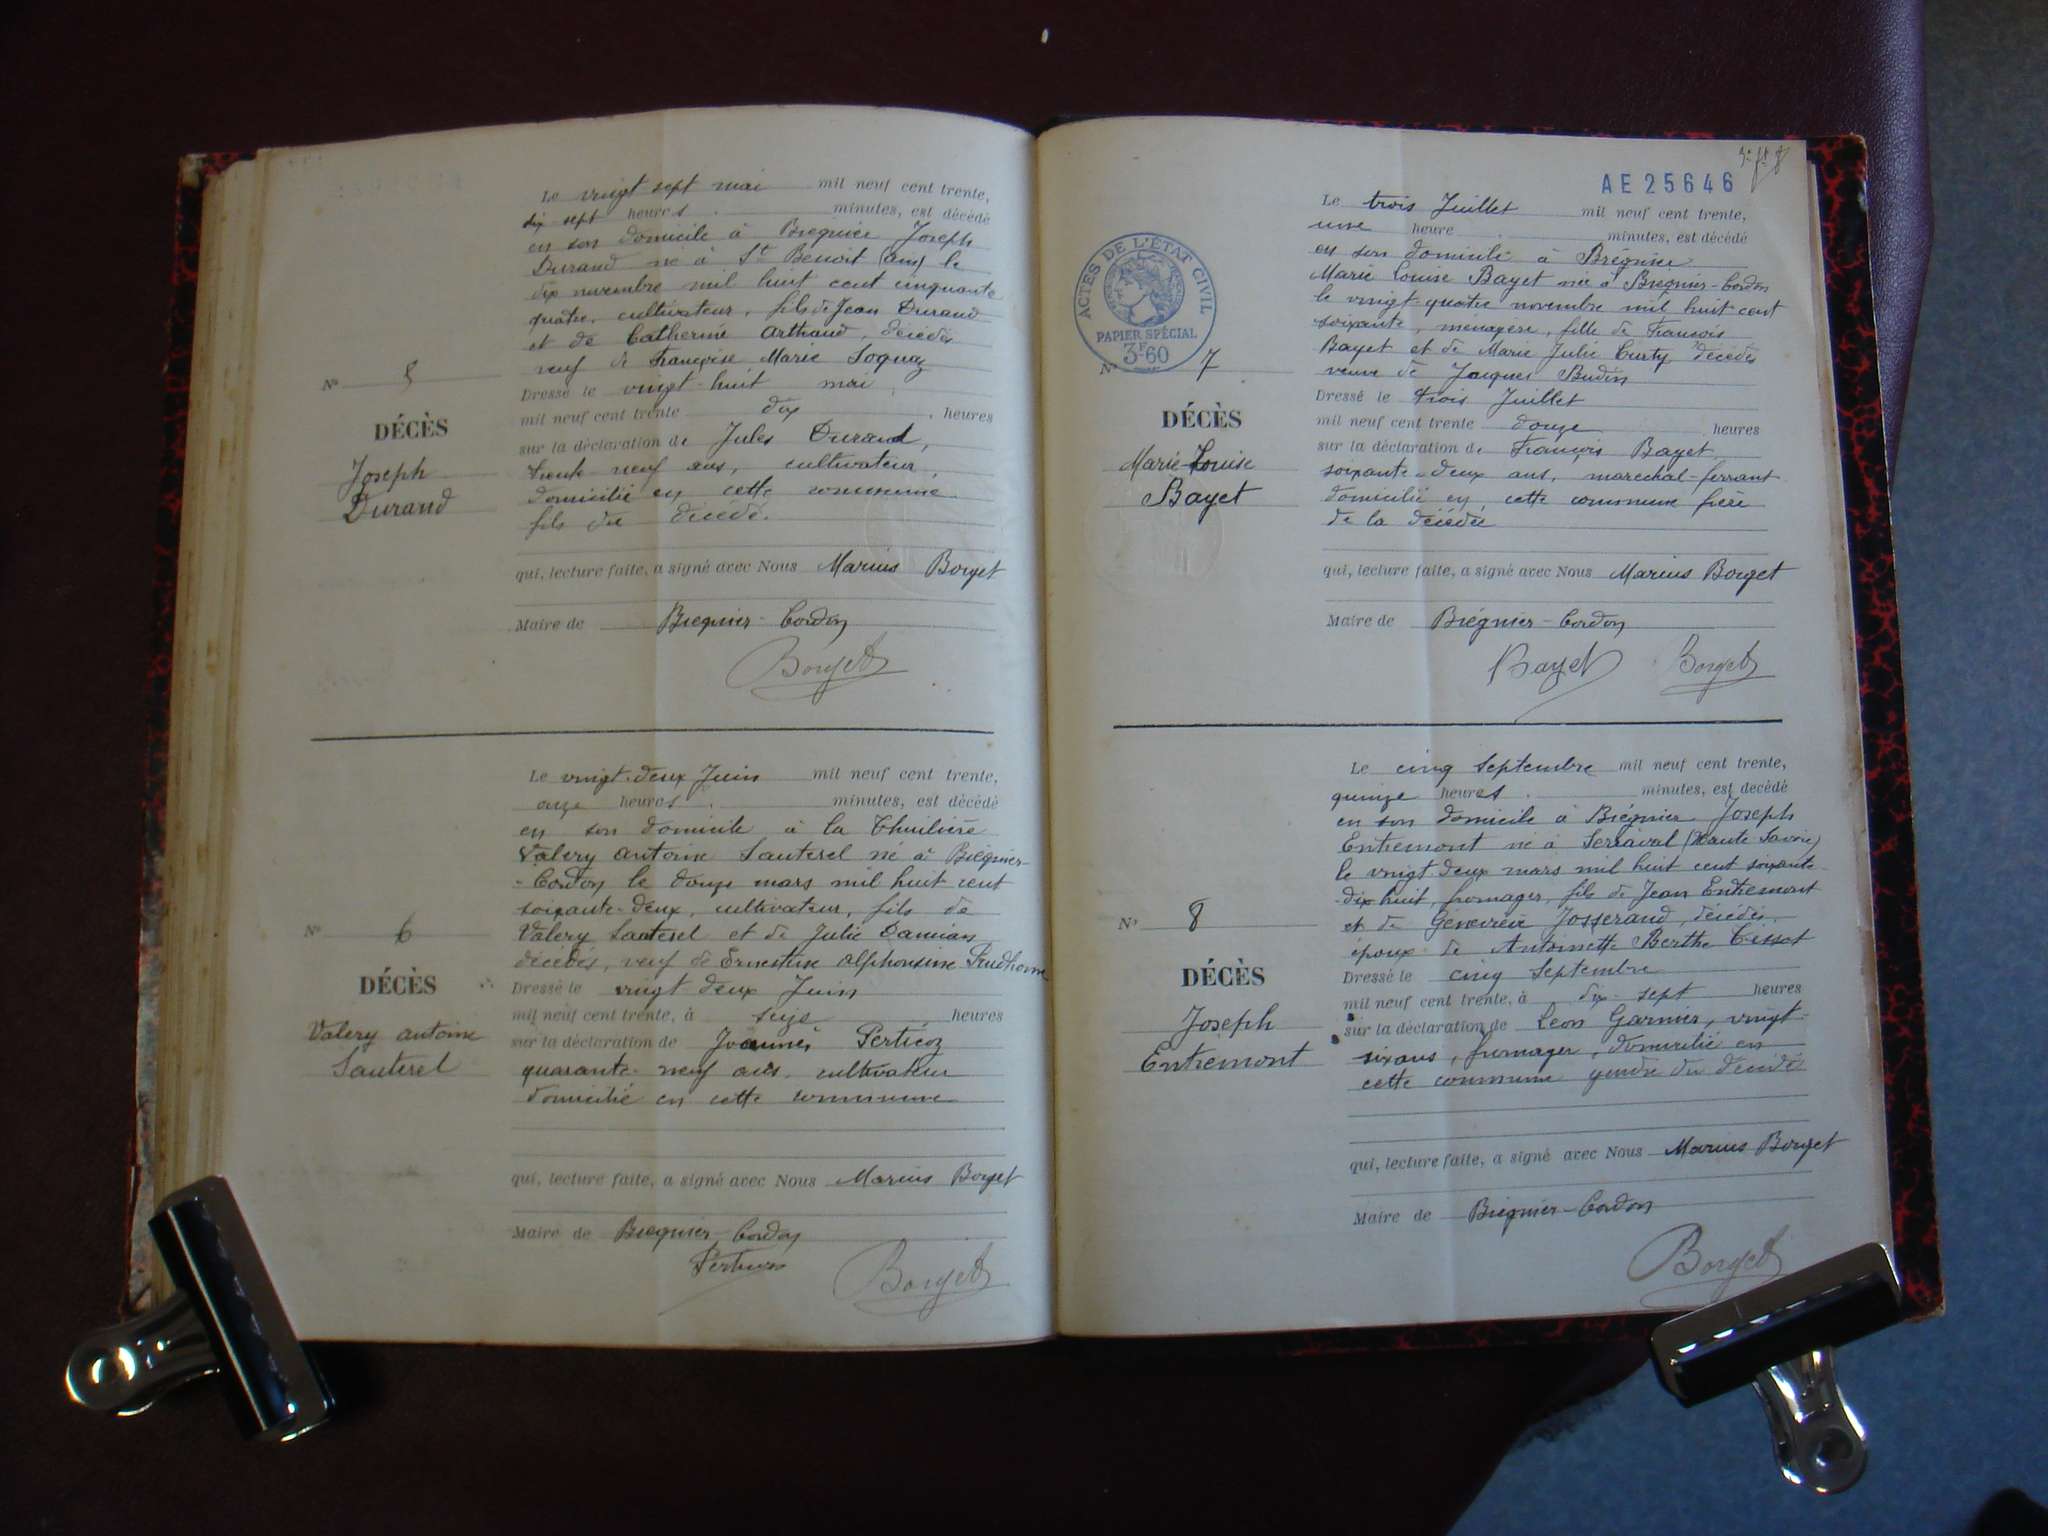 Le vingt sept mai mil neuf cent trente,
dix sept heures minutes, est décédé
en son domicile à Brégnier Joseph
Durand né à St Benoit (ain) le
dix novembre mil huit cent cinquante
quatre, cultivateur, fils de Jean Durand
et de Catherine Arthaud, décédés
veuf de Françoise Marie Soquaz
Nº 5
Dressé le vingt-huit mai
mil neuf cent trente dix heures
DÉCÈS
sur la déclaration de Jules Durand,
Joseph
trente-neuf ans, cultivateur,
Durand
domicilié en cette commune
fils du décédé.
qui, lecture faite, a signé avec Nous Marius Borget
Maire de Brégnier-Cordon
Borget
Le vingt-deux Juin mil neuf cent trente,
onze heures minutes, est décédé
en son domicile à la Thuilière
Valery antoine Sauterel né à Brégnier-
-Cordon le douze mars mil huit cent
soixante-deux, cultivateur, fils de
Nº 6
Valery Sauterel et de Julie Damian
décédés, veuf de Ernestine alphonsine Prudhomme
DÉCÈS
Dressé le vingt deux Juin
mil neuf cent trente, à seize heures
Valery antoine
sur la déclaration de Joannès Perticoz
Sauterel
quarante-neuf ans, cultivateur
domicilié en cette commune
qui, lecture faite, a signé avec Nous Marius Borget
Maire de Brégnier-Cordon
Borget
AE 25646
ACTES DE L'ÉTAT CIVIL
PAPIER SPÉCIAL
3F60
Le trois Juillet mil neuf cent trente,
une heure minutes, est décédé
en son domicile à Brégnier
Marie Louise Bayet née à Brégnier-Cordon
le vingt-quatre novembre mil huit cent
soixante, ménagère, fille de François
Bayet et de Marie Julie Curty décédés
Nº 7
veuve de Jacques Budin
Dressé le trois Juillet
DÉCÈS
mil neuf cent trente douze heures
sur la déclaration de François Bayet
Marie-Louise
soixante-deux ans, marechal-ferrant
Bayet
domicilié en cette commune frère
de la décédée
qui, lecture faite, a signé avec Nous Marius Borget
Maire de Brégnier-Cordon
Bayet Borget
Le cinq Septembre mil neuf cent trente,
quinze heures minutes, est decédé
en son domicile à Brégnier Joseph
Entremont né à Serraval (Haute Savoie)
le vingt deux mars mil huit cent soixante
-dix huit, fromager, fils de Jean Entremont
Nº 8
et de Géneviève Josserand, décédés,
époux de Antoinette Berthe Tissot
DÉCÈS
Dressé le cinq Septembre
mil neuf cent trente, à dix-sept heures
Joseph
sur la déclaration de Leon Garnier, vingt-
Entremont
six ans, fromager, domicilié en
cette commune gendre du décédé
qui, lecture faite, a signé avec Nous Marius Borget
Maire de Brégnier-Cordon
Borget